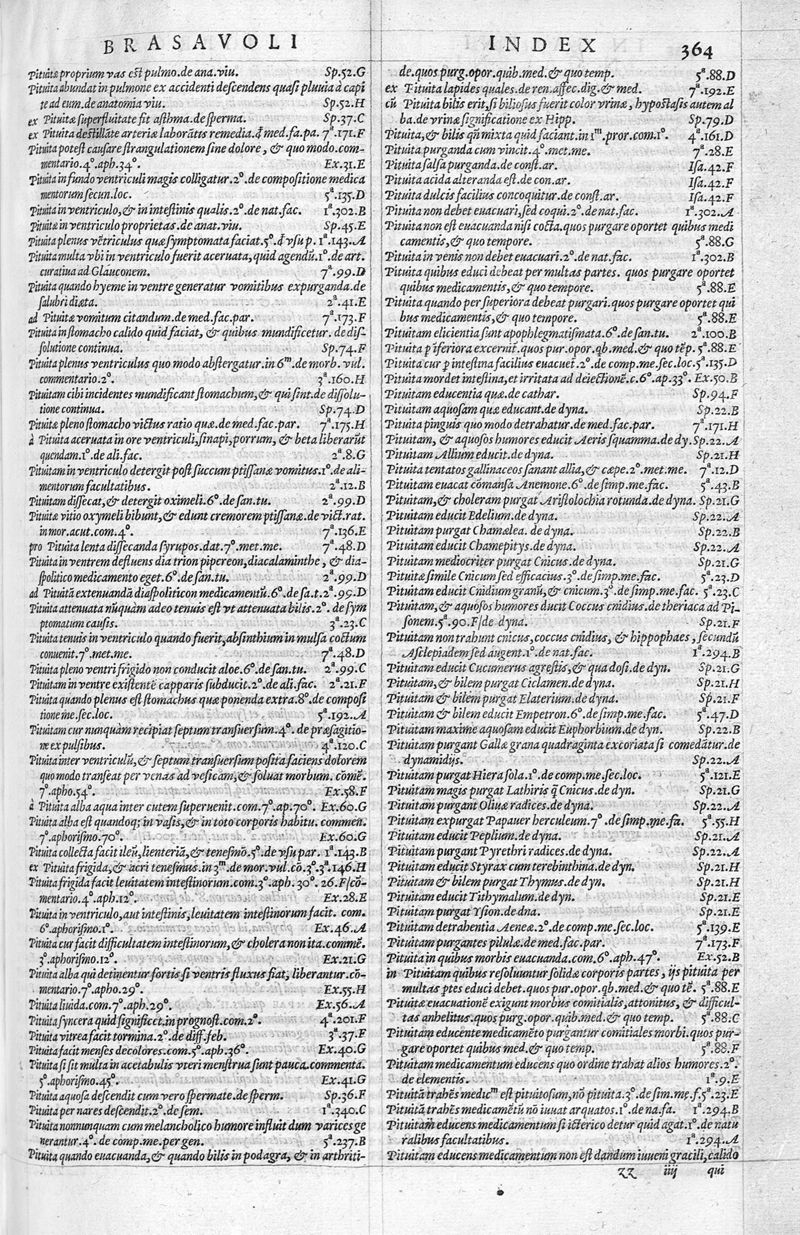 BRASAVOLI
Pituitæ proprium vas est pulmo.de ana.viu. Sp.52.G
Pituita abundat in pulmone ex accidenti descendens quasi pluuia à capi
te ad eum.de anatomia viu. Sp.52.H
ex Pituitæ superfluitate fit asthma.de sperma. Sp.37.C
ex Pituita destillãte arteriæ laborãtis remedia.d̃ med.fa.pa. 7ª.171.F
Pituita potest causare strangulationem sine dolore, & quo modo.com-
mentario.4°.aph.34°. Ex.31.E
Pituita in fundo ventriculi magis colligatur.2°.de compositione medica
mentorum secun.loc. 5ª.135.D
Pituita in ventriculo,& in intestinis qualis.2°.de nat.fac. 1ª.302.B
Pituita in ventriculo proprietas.de anat.viu. Sp.45.E
Pituita plenus vẽtriculus quæ symptomata faciat.5°.d̃ vsu p. 1ª.143.A
Pituita multa vbi in ventriculo fuerit aceruata,quid agendũ.1°.de art.
curatiua ad Glauconem. 7ª.99.D
Pituita quando hyeme in ventre generatur vomitibus expurganda.de
salubri diæta. 2ª.41.E
ad Pituitæ vomitum citandum.de med.fac.par. 7ª.173.F
Pituita in stomacho calido quid faciat, & quibus mundificetur. de dis-
solutione continua. Sp.74.F
Pituita plenus ventriculus quo modo abstergatur.in 6ᵐ.de morb. vul.
commentario.2°. 3ª.160.H
Pituitam cibi incidentes mundificant stomachum,& qui sint.de dissolu-
tione continua. Sp.74.D
Pituitæ pleno stomacho victus ratio quæ.de med.fac.par. 7ª.175.H
à Pituita aceruata in ore ventriculi,sinapi,porrum, & beta liberarũt
quendam.1°.de ali.fac. 2ª.8.G
Pituitam in ventriculo detergit post succum ptissanæ vomitus.1°.de ali-
mentorum facultatibus. 2ª.12.B
Pituitam dissecat,& detergit oximeli.6°.de san.tu. 2ª.99.D
Pituitæ vitio oxymeli bibunt,& edunt cremorem ptissanæ.de vict.rat.
in mor.acut.com.4°. 7ª.136.E
pro Pituita lenta dissecanda syrupos.dat.7°.met.me. 7ª.48.D
Pituita in ventrem defluens dia trion pipereon,diacalaminthe, & dia-
spolitico medicamento eget.6°.de san.tu. 2ª.99.D
ad Pituitã extenuandã diaspoliticon medicamentũ.6°.de sa.t.2ª.99.D
Pituita attenuata nũquàm adeo tenuis est vt attenuata bilis.2°. de sym
ptomatum causis. 3ª.23.C
Pituita tenuis in ventriculo quando fuerit,absinthium in mulsa coctum
conuenit.7°.met.me. 7ª.48.D
Pituita pleno ventri frigido non conducit aloe.6°.de san.tu. 2ª.99.C
Pituitam in ventre existentẽ capparis subducit.2°.de ali.fac. 2ª.21.F
Pituita quando plenus est stomachus quæ ponenda extra.8°.de composi
tione me.sec.loc. 5ª.192.A
Pituitam cur nunquàm recipiat septum transuersum.4°. de præsagitio-
ne ex pulsibus. 4ª.120.C
Pituita inter ventriculũ,& septum transuersum posita faciens dolorem
quo modo transeat per venas ad vesicam,& soluat morbum. cõmẽ.
7°.apho.54°. Ex.58.F
à Pituita alba aqua inter cutem superuenit.com.7°.ap.70°. Ex.60.G
Pituita alba est quandoq; in vasis,& in toto corporis habitu. commen.
7°.aphorismo.70°. Ex.60.G
Pituita collecta facit ileũ,lienteriã,& tenesmõ.5°.de vsu par. 1ª.143.B
ex Pituita frigida,& acri tenesmus.in 3ᵐ.de mor.vul.cõ.3°.3ª.146.H
Pituita frigida facit leuitatem intestinorum.com.3°.aph.30°.26.F/cõ-
mentario.4°.aph.12°. Ex.28.E
Pituita in ventriculo,aut intestinis,leuitatem intestinorum facit. com.
6°.aphorismo.1°. Ex.46.A
Pituita cur facit difficultatem intestinorum,& cholera non ita.commẽ.
3°.aphorismo.12°. Ex.21.G
Pituita alba qui detinentur fortis si ventris fluxus fiat, liberantur.cõ-
mentario.7°.apho.29°. Ex.55.H
Pituita liuida.com.7°.aph.29°. Ex.56.A
Pituita syncera quid significet.in prognost.com.2°. 4ª.201.F
Pituita vitrea facit tormina.2°.de diff.feb. 3ª.37.F
Pituita facit menses decolores.com.5°.aph.36°. Ex.40.G
Pituita si sit multa in acetabulis vteri menstrua sunt pauca.commenta.
5°.aphorismo.45°. Ex.41.G
Pituita aquosa descendit cum vero spermate.de sperm. Sp.36.F
Pituita per nares descendit.2°.de sem. 1ª.340.C
Pituita nonnunquam cum melancholico humore influit dum varices ge
nerantur.4°. de comp.me.per gen. 5ª.237.B
Pituita quando euacuanda,& quando bilis in podagra, & in arthriti-
INDEX 364
de.quos purg.opor.quib.med.& quo temp. 5ª.88.D
ex Pituita lapides quales.de ren.affec.dig.& med. 7ª.192.E
cũ Pituita bilis erit,si biliosus fuerit color vrinæ, hypostasis autem al
ba.de vrinæ significatione ex Hipp. Sp.79.D
Pituita,& bilis qñ mixta quid faciant.in 1ᵐ.pror.com.1°. 4ª.161.D
Pituita purganda cum vincit.4°.met.me. 7ª.28.E
Pituita salsa purganda.de const.ar. Isa.42.F
Pituita acida alteranda est.de con.ar. Isa.42.F
Pituita dulcis facilius concoquitur.de const.ar. Isa.42.F
Pituita non debet euacuari,sed coqui.2°.de nat.fac. 1ª.302.A
Pituita non est euacuanda nisi cocta.quos purgare oportet quibus medi
camentis,& quo tempore. 5ª.88.G
Pituita in venis non debet euacuari.2°.de nat.fac. 1ª.302.B
Pituita quibus educi debeat per multas partes. quos purgare oportet
quibus medicamentis,& quo tempore. 5ª.88.E
Pituita quando per superiora debeat purgari.quos purgare oportet qui
bus medicamentis,& quo tempore. 5ª.88.E
Pituitam elicientia sunt apophlegmatismata.6°.de san.tu. 2ª.100.B
Pituita p iferiora excernit̃.quos pur.opor.qb.med.& quo tẽp. 5ª.88.E
Pituita cur p intestina facilius euacuet̃.2°.de com.me.sec.loc.5ª.135.D
Pituita mordet intestina,et irritata ad deiectionẽ.c.6°.ap.33°. Ex.50.B
Pituitam educentia quæ.de cathar. Sp.94.F
Pituitam aquosam quæ educant.de dyna. Sp.22.B
Pituita pinguis quo modo detrahatur.de med.fac.par. 7ª.171.H
Pituitam, & aquosos humores educit Aeris squamma.de dy.Sp.22.A
Pituitam Allium educit.de dyna. Sp.21.H
Pituita tentatos gallinaceos sanant allia,& cæpe.2°.met.me. 7ª.12.D
Pituitam euacat cõmansa Anemone.6°.de simp.me.fac. 5ª.43.B
Pituitam,& choleram purgat Aristolochia rotunda.de dyna. Sp.21.G
Pituitam educit Edelium.de dyna. Sp.22.A
Pituitam purgat Chamælea. de dyna. Sp.22.B
Pituitam educit Chamepitys.de dyna. Sp.22.A
Pituitam mediocriter purgat Cnicus.de dyna. Sp.21.G
Pituitæ simile Cnicum sed efficacius.3°.de simp.me.fac. 5ª.23.D
Pituitam educit Cnidium granũ,& cnicum.3°.de simp.me.fac. 5ª.23.C
Pituitam,& aquosos humores ducit Coccus cnidius.de theriaca ad Pi-
sonem.5ª.90.F/de dyna. Sp.21.F
Pituitam non trahunt cnicus,coccus cnidius, & hippophaes,secundũ
Asclepiadem sed augent.1°.de nat.fac. 1ª.294.B
Pituitam educit Cucumerus agrestis,& qua dosi.de dyn. Sp.21.G
Pituitam,& bilem purgat Ciclamen.de dyna. Sp.21.H
Pituitam & bilem purgat Elaterium.de dyna. Sp.21.F
Pituitam & bilem educit Empetron.6°.de simp.me.fac. 5ª.47.D
Pituitam maxime aquosam educit Euphorbium.de dyn. Sp.22.B
Pituitam purgant Gallæ grana quadraginta excoriata si comedãtur.de
dynamidijs. Sp.22.A
Pituitam purgat Hiera sola.1°.de comp.me sec.loc. 5ª.121.E
Pituitam magis purgat Lathiris q̃ Cnicus.de dyn. Sp.21.G
Pituitam purgant Oliuæ radices.de dyna. Sp.22.A
Pituitam expurgat Papauer herculeum.7°.de simp.me.fa. 5ª.55.H
Pituitam educit Peplium.de dyna. Sp.21.A
Pituitam purgant Pyrethri radices.de dyna. Sp.22.A
Pituitam educit Styrax cum terebinthina.de dyn. Sp.21.H
Pituitam & bilem purgat Thymus.de dyn. Sp.21.H
Pituitam educit Tithymalum.de dyn. Sp.21.E
Pituitam purgat Ysion.de dna. Sp.21.E
Pituitam detrahentia Aeneæ.2°.de comp.me.sec.loc. 5ª.139.E
Pituitam purgantes pilulæ.de med.fac.par. 7ª.173.F
Pituita in quibus morbis euacuanda.com.6°.aph.47°. Ex.52.B
in Pituitam quibus resoluuntur solidæ corporis partes, ijs pituita per
multas ptes educi debet.quos pur.opor.qb.med.& quo tẽ. 5ª.88.E
Pituitæ euacuationẽ exigunt morbus comitialis,attonitus, & difficul-
tas anhelitus.quos purg.opor.quib.med.& quo temp. 5ª.88.C
Pituitam educente medicamẽto purgantur comitiales morbi.quos pur-
gare oportet quibus med.& quo temp. 5ª.88.F
Pituitam medicamentum educens quo ordine trahat alios humores.2°.
de elementis. 1ª.9.E
Pituitã trahẽs medicᵐ est pituitosum,nõ pituita.3°.de sim.me.f.5ª.23.E
Pituitã trahẽs medicamẽtũ nõ iuuat arquatos.1°.de na.fa. 1ª.294.B
Pituitam educens medicamentum si icterico detur quid agat.1°.de natu
ralibus facultatibus. 1ª.294.A
Pituitam educens medicamentum non est dandum iuueni gracili,calido
zz iiij qui